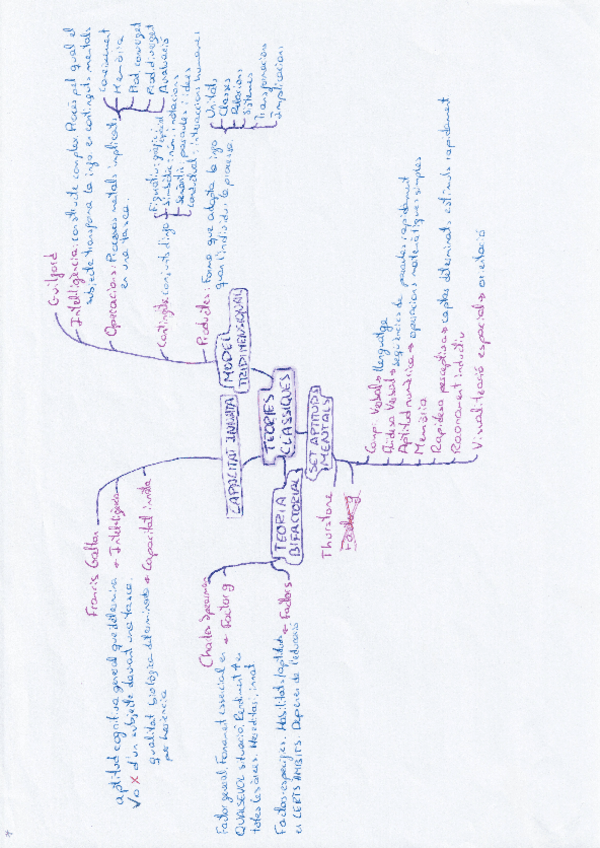 TEORIES
CLÀSSIQUES
CAPACITAT INNATA
Francis Galton
Intel·ligència
aptitud cognitiva general que determina
V o X d'un subjecte davant una tasca.
Capacitat innata
qualitat biològica determinada
per herència
TEORIA
BIFACTORIAL
Charles Spearman
Factor g
Factor general. Fonament essencial en
QUALSEVOL situació. Rendiment + en
totes les àrees. Hereditari, innat
Factor s
Factors específics. Habilitats/aptituds
en CERTS ÀMBITS. Depenen de l'educació
MODEL
TRIDIMENSIONAL
Guilford
Intel·ligència: constructe complex. Procés pel qual el
subjecte transforma la info. en continguts mentals
Operacions: Processos mentals implicats
en una tasca.
Coneixement
Memòria
Prod. converget
Prod. diverget
Avaluació
Contingut: conjunts d'info
Figuratiu: gràfic
Simbòlic: núm. i notacions
Semàntic: paraules i idees
Conductual: interaccions humanes
Productes: Forma que adopta la info
quan l'individu la processa.
Unitats
Classes
Relacions
Sistemes
Transformacions
Implicacions
SET APTITUDS
MENTALS
Thurstone
Factor g
Comp. Verbal → llenguatge
Fluïdesa Verbal → seqüències de paraules ràpidament
Aptitud numèrica → operacions matemàtiques simples
Memòria
Rapidesa perceptiva → captar determinats estímuls ràpidament
Raonament inductiu
Visualització espacial → orientació